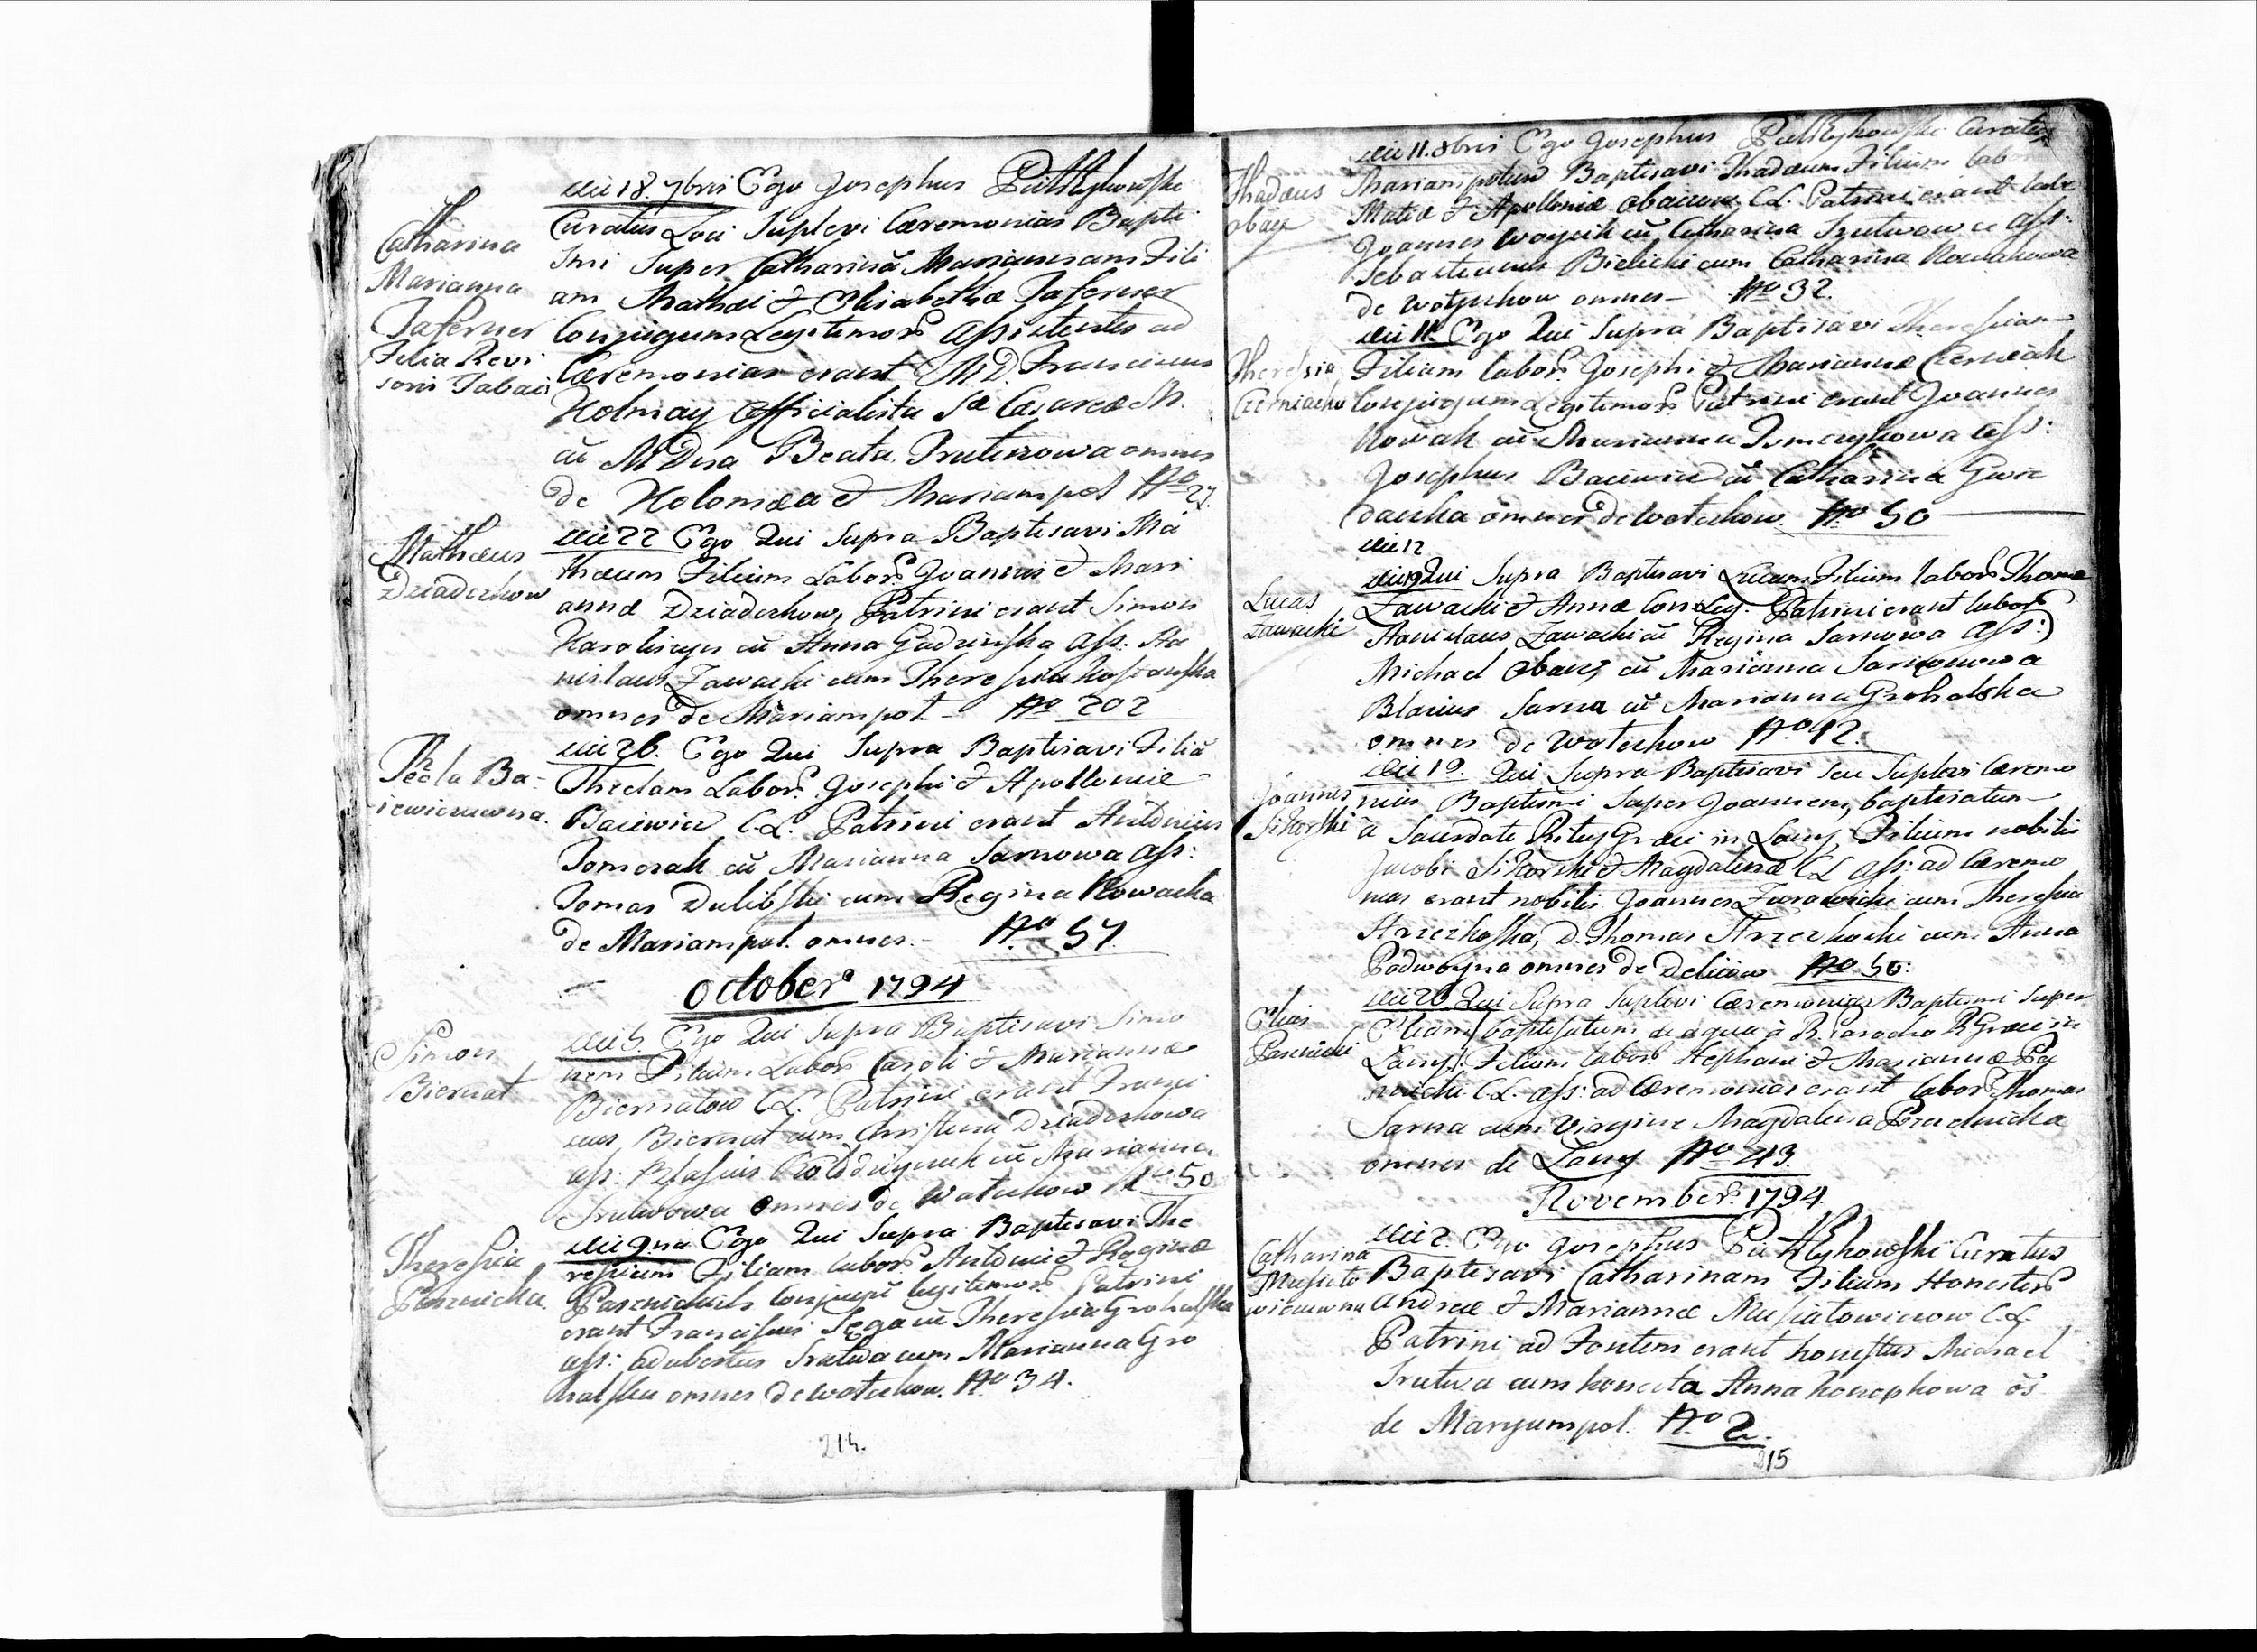 Catharina
Marianna
Taferner
Filia Revi
soris Tabaci
die 18. 7bris Ego Josephus
Curatus Loci Suplevi Caeremonias Bapti
smi Super Catharinã Mariannam Fili
am Mathaei & Elisabethae Taferner
Conjugum Legitimorũ Assistentes ad
Caeremonias erant M.D. Franciscus
Holmay Officialista Sae Caesareae M.
cũ M Dna Beata omnes
de Kolomaea & Mariampol No 27.
Mathaeus
Dziadczkow
die 22 Ego Qui Supra Baptisavi Ma
thaeum Filium Labor. Joannis & Mari
annae Dziadczkow, Patrini erant Simon
cũ Anna Gadzinska Ass: Sta
nislaus Zawacki cum Theresia
omnes de Mariampol – No 202
Thecla Ba-
iewiczuwna.
die 26. Ego Qui Supra Baptisavi Filiã
Theclam Labor. Josephi & Apolloniae
Baiewicz C.L. Patrini erant Antonius
Pomerak cũ Marianna Sarnowa Ass:
Tomas Dulibski cum Regina Nowacka
de Mariampol. omnes. – No 57.
October 1794
Simon
Biernat
die 5. Ego Qui Supra Baptisavi Simo
nem Filium Labor Caroli & Mariannae
Biernatow C.L. Patrini erant Franci
scus Biernat cum Christina Dziadczkowa
ass: Blasius cũ Marianna
Srutwowa Omnes de Wotczkow No 50
Theresia
Pasznicka.
die 9na Ego Qui Supra Baptisavi The
resiam Filiam Labor Antonii & Reginae
Conjugũ legitimor. Patrini
erant Franciscus Sega cũ Theresia Grohalska
ass: Adalbertus Srutwa cum Marianna Gro
halska omnes de Wotczkow. No 34.
214.
Thadaeus
Obacz
die 11. 8bris Ego Josephus Curatus
Mariampolien Baptisavi Thadaeum Filium lab
& Apolloniae C.L. Patrini erant labr
Joannes Woycik cũ Catharina Srutwowa ass:
Sebastianus Bielicki cum Catharina Nowakowa
de Wotczkow omnes – No 32.
Theresia
Czerniacho
die 11. Ego Qui Supra Baptisavi Theresiam
Filiam labor. Josephi & Mariannae Czerniak
Conjugum Legitimor. Patrini erant Joannes
Nowak cũ Marianna ass:
Josephus Baiewicz cũ Catharina Gwiz
dacska omnes de Wotczkow. No 50
die 12
Lucas
Zawacki
Qui Supra Baptisavi Lucam Filium labor. Thomae
Zawacki & Annae Con Leg. Patrini erant labor
Stanislaus Zawacki cũ Regina Sarnowa ass:
Michael Obacz, cũ Marianna
Blasius Sarna cũ Marianna Grohalska
omnes de Wotczkow No 92.
Joannes
Sikorski
die 19. Qui Supra Baptisavi seu Suplevi Caeremo
nias Baptismi Super Joannem, baptisatum
a Sacerdote Ritus Graeci in Lany, Filium nobilis
Jacobi Sikorski & Magdalenae C.L. ass: ad Caeremo
nias erant nobilis Joannes Zurawicki cum Theresia
Strzezkoska, D. Thomas Strzezkocki cum Anna
Padwoyna omnes de Deliiow No 50.
Elias
Pasnicki
die 26. Qui Supra Suplevi Caeremonias Baptismi Super
Eliam baptisatum de aqua à R. Parocho R. Graeci in
Lany. Filium labor. Stephani & Mariannae Pa
snicki C.L. ass: ad Caeremonias erant labor. Thomas
Sarna cum Virgine Magdalena
omnes de Lany No 43.
November 1794.
Catharina
Musiato
wiczuwna
die 2. Ego Josephus Curatus
Baptisavi Catharinam Filiam Honestor
Andreae & Mariannae Musiatowiczow C.L.
Patrini ad Fontem erant honestus Michael
Srutwa cum honesta Anna Konopkowa os
de Maryampol. No 2.
215